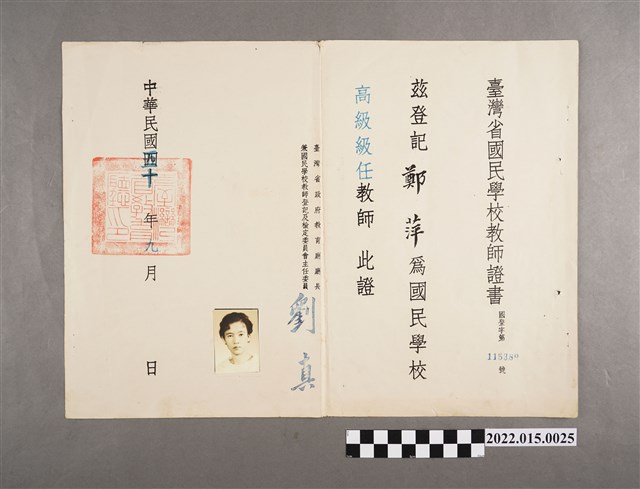 臺灣省國民學校教師證書
國登字第115380號
茲登記鄭萍為國民學校
高級級任教師 此證
臺灣省政府教育廳廳長
兼國民學校教師登記及檢定委員會主任委員
劉真
中華民國四十年九月 日
2022.015.0025